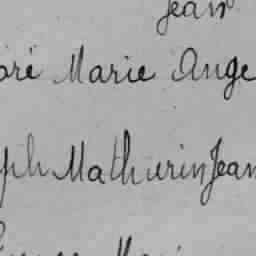 Jean
oré Marie Ange
ph Mathurin Jean